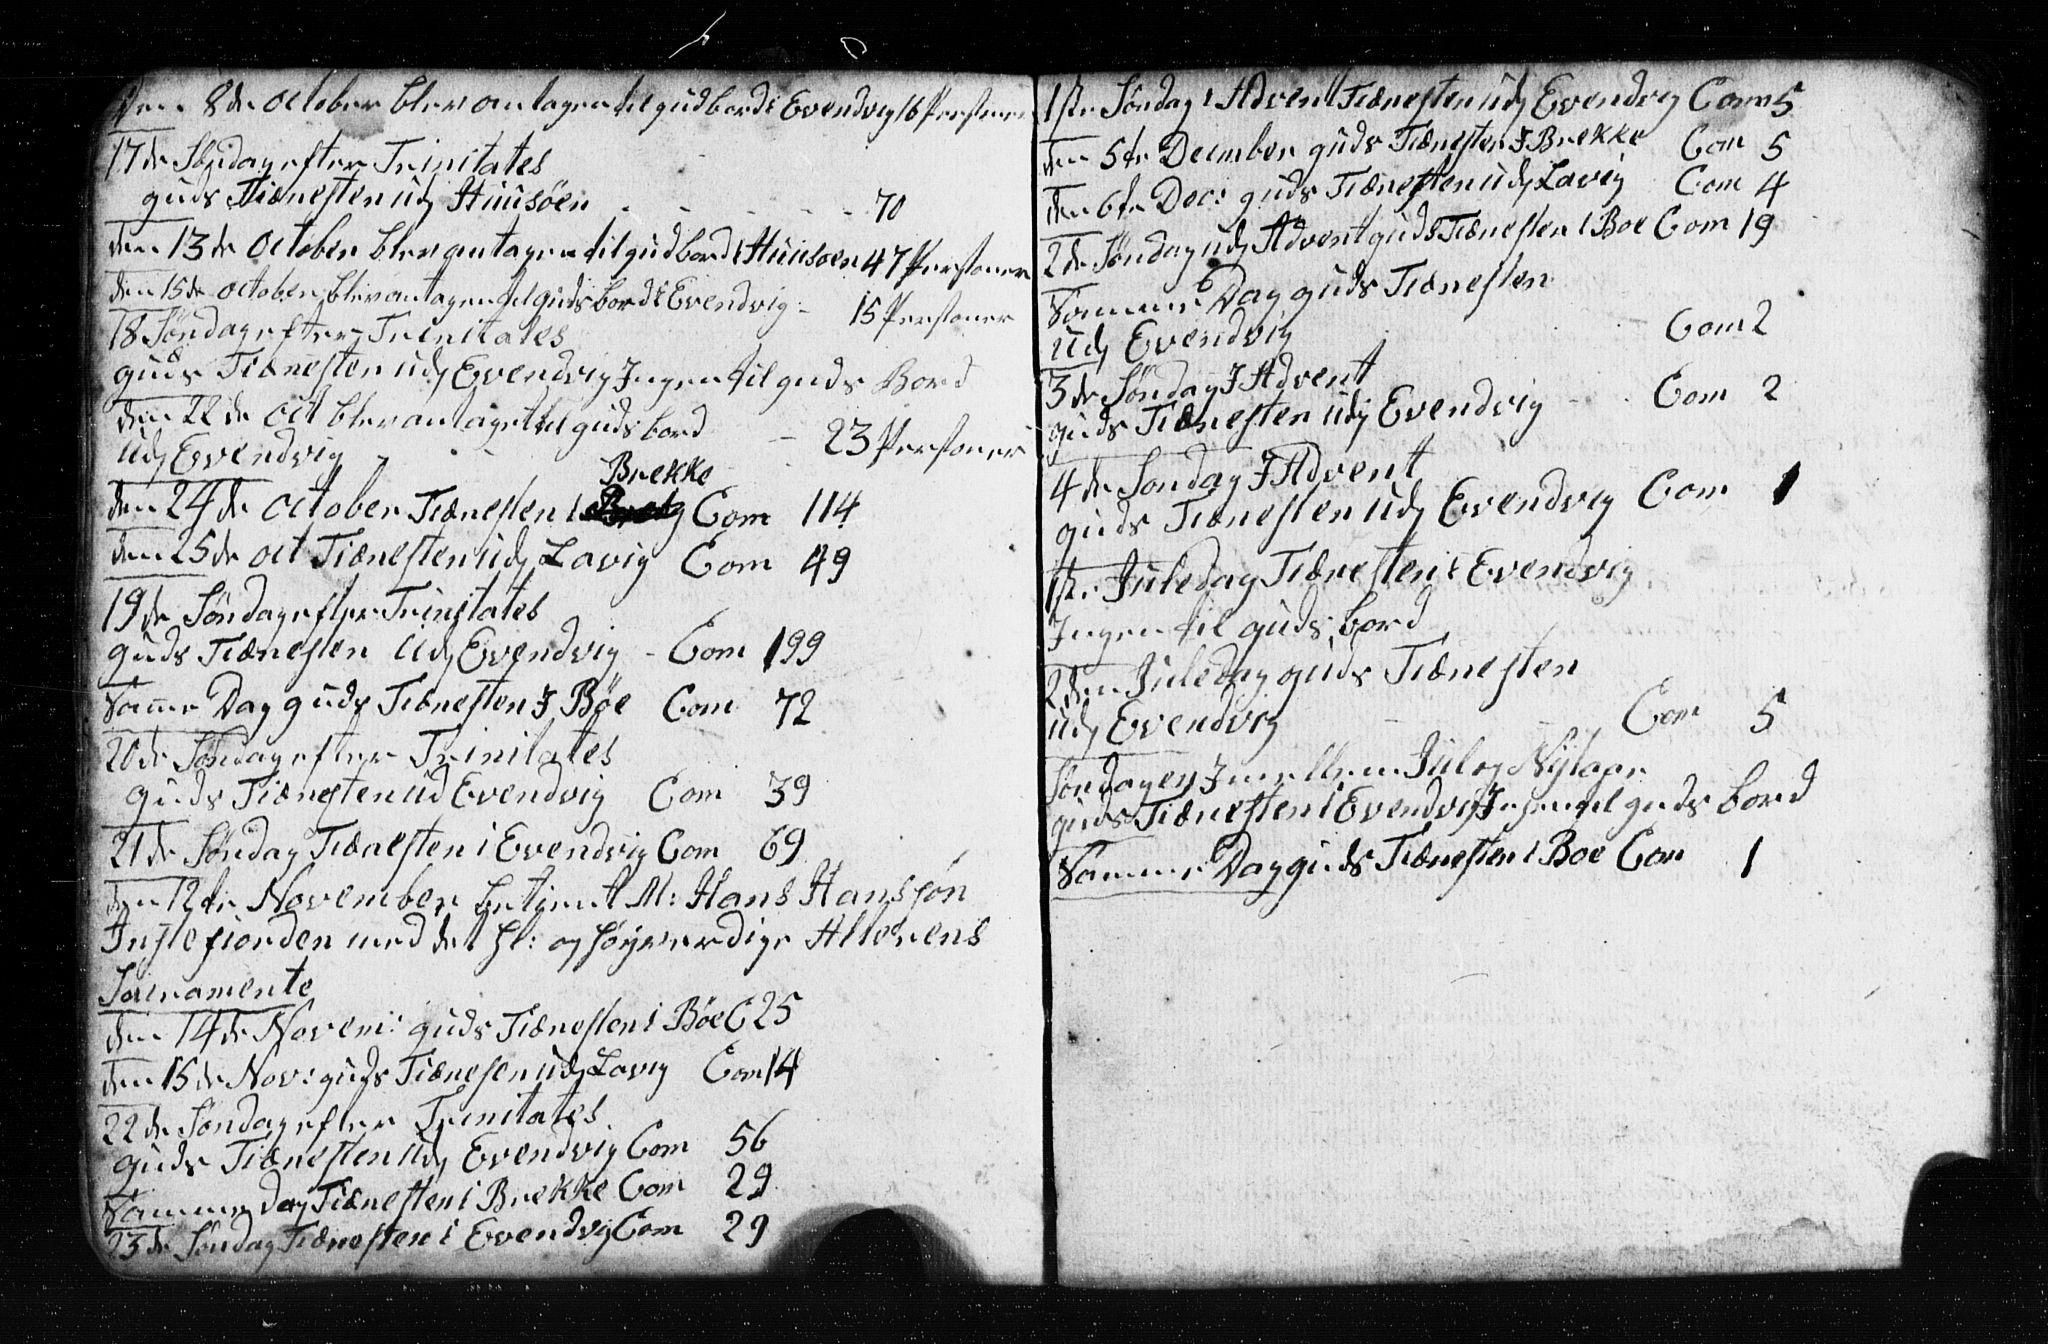 den 8de October blev antagen til gudbord i Evendvig 16 Personer
17de Søndag efter Trinitates
guds Tiænesten udj Huusöen - - - - - 70
den 13de October blev antagen til gudbord i Huusoen 47 Personer
den 15de october blev antagen til guds bord i Evendvig - 15 Personer
18 Søndag efter Trinitates
guds Tiænesten udj Evendvig Ingen til guds Bord
den 22de oct blev antaget til guds bord
Udj Evendvig - - - 23 Personer
Brekke
den 24de October Tiænesten i Com 114
den 25de oct Tiænesten udj Lavig Com 49
19de Søndag efter Trinitates
guds Tiænesten Udj Evendvig - Com 199
Samme Dag guds Tiænesten I Böe Com 72
20de Søndag efter Trinitates
guds Tiænesten ud Evendvig Com 39
21de Søndag Tiænesten i Evendvig Com 69
den 12te November betient M: Hans Hansøn
Inglefiorden med det hl: og høyværdige Alterens
Sacramente
den 14de Novem: guds Tiænesten i Böe C 25
den 15de Nov: guds Tiænesten udj Lavig Com 14
22de Søndag efter Trinitates
guds Tiænesten Udj Evendvig Com 56
Samme Dag Tiænesten i Brekke Com 29
23de Søndag Tiænesten i Evendvig Com 29
1ste Søndag i Advent Tiænesten udj Evendvig Com 5
den 5te December guds Tiænesten I Brekke Com 5
den 6te Dec: guds Tiænesten udj Lavig Com 4
2de Søndag udj Advent guds Tiænesten i Boe Com 19
Samme Dag guds Tiænesten
Udj Evendvig Com 2
3de Søndag I Advent
guds Tiænesten udj Evendvig - Com 2
4de Søndag I Advent
guds Tiænesten udj Evendvig Com 1
1ste Juledag Tiænesten i Evendvig
Ingen til guds bord
2den Juledag guds Tiænesten
udj Evendvig - - Com 5
Søndagen Imellem Jul og Nytaar
guds Tiænesten i Evendvig Ingen til guds bord
Samme Dag guds Tiænesten i Boe Com 1